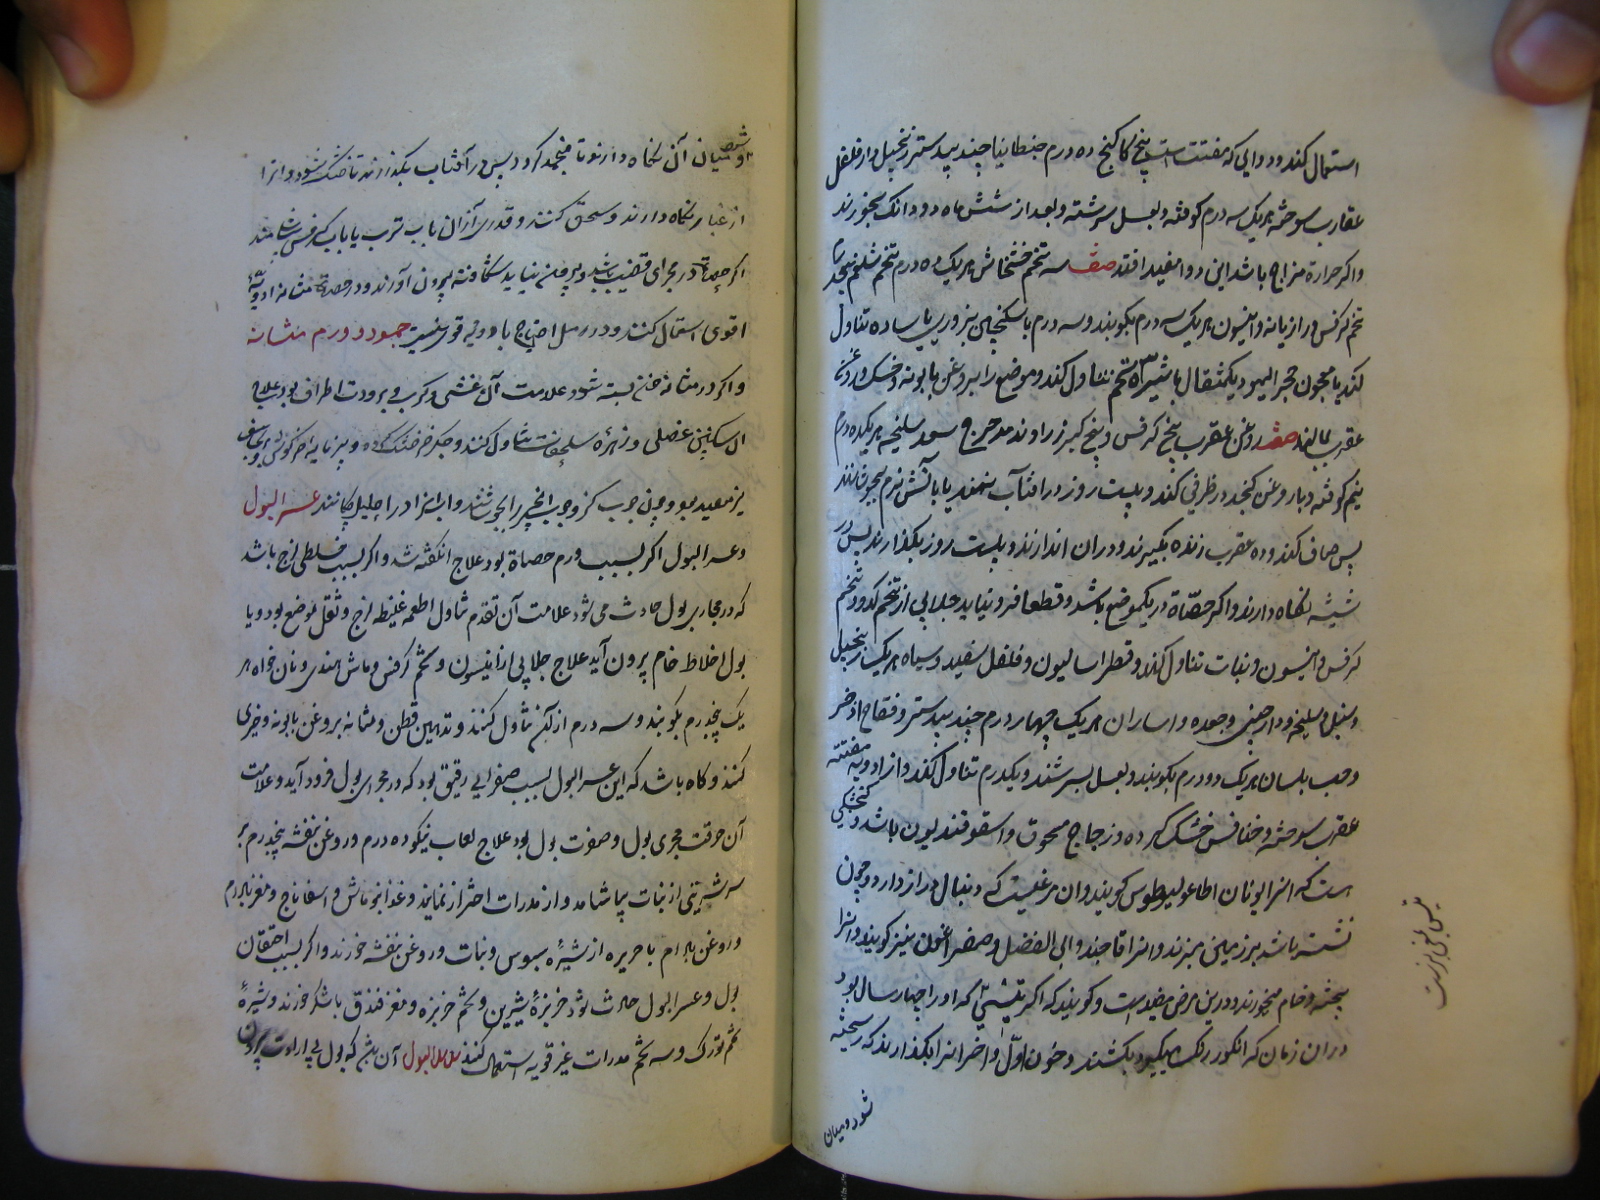 استعمال کنند و دوایی که مفتت است بیخ کاکنج ده درم جنطیانا جندبیدستر زنجبیل دارفلفل
عقارب سوخته هر یک سه درم کوفته و بعسل سرشته و بعد از شش ماه دو دانک بخورند
و اکر حرارة مزاج باشد این دوا مفید افتد صفت سه تخم خشخاش هر یک ده درم تخم شلغم
تخم کرفس و رازیانه و انیسون هر یک سه درم بکوبند و سه درم با سکنجبین بزوری یا ساده تناول
کنند یا معجون حجر الیهود یکمثقال با شیرۀ تخم تناول کنند و موضع را بروغن بابونه و خسک و روغن
عقرب بمالند صفت روغن عقرب بیخ کرفس و بیخ کبر زراوند مدحرج سعد سلیخه هر یک ده درم
نیم کوفته و بار وغن کنجد در ظرفی کنند و بیست روز در افتاب نهند یا بآتش نرم بجوشانند
پس صاف کنند و ده عقرب زنده بگیرند و در ان اندازند و بیست روز بگذارند پس در
شیشه نکاه دارند و اکر حصاة در یکموضع باشد و قطعا فرو نیاید جلابی از تخم کدو و تخم
کرفس و انیسون و نبات تناول کنند و قطراسالیون و فلفل سفید و سیاه هر یک زنجبیل
و سنبل و سلیخه و دارچینی و جعده و اسارون هر یک چهار درم جندبیدستر و فقاح اذخر
و حب بلسان هر یک دو درم بکوبند و بعسل بسرشند و یکدرم تناول کنند و از ادویه مفتته
عقرب سوخته و خنافس خشک کرده و زجاج محوق و اسقوقندریون باشد و کنجشکی
است که انرا یونان اطاغولیطوس کویند و ان مرغیست که دنبال دراز دارد و چون
نشسته باشد بر زمین میزند و انرا قاجند و ابی الفضیل و صفراغون نیز کویند و انرا
بپخته و خام میخورند و درین مرض مفید است و کویند که اکر تیشی که او را چهار سال بود
در ان زمان که انکور رنک میکیرد بکشند و خون اول و اخر انرا بکذارند که ریخته
شود و میان
اوسط میان آن نکاه دارند تا منجمد کردد پس در آفتاب بکذارند تا خشک شود و انرا
از غبار نکاه دارند و سحق کنند و قدری از ان باب ترب یا باب کرفس بیاشامند
اکر حصاة در مجرای قضیب باشد و بیرون نیاید شکافته بیرون آورند و در حصاة مثانه ادویۀ
اقوی استعمال کنند و در رمل احتیاج بادویه قوی نیست جمود و ورم مثانه
و اکر در مثانه خون بسته شود علامت آن غشی و کرب و برودت اطراف بود علاج
ان سکنجبین عنصلی و زهره سلحفات تناول کنند و جکر خر خشک کرده و پنیرمایه خرکوش
نیز مفید بود و چون چوب کز و چوب انجیر را بجوشانند و اب انرا در احلیل چکانند عسر البول
و عسر البول اکر بسبب ورم حصاة بود علاج ان کفته شد و اکر بسبب خلطی لزج باشد
که در مجاری بول حادث می شود علامت آن تقدم تناول اطعمه غلیظه لزج و ثقل موضع بود و با
بول اخلاط خام بیرون آید علاج جلابی از انیسون و تخم کرفس و ماش هندی و نان خواه هر
یک پنجدرم بکوبند و سه درم از ان تناول کنند و تدهین قطن و مثانه بروغن بابونه و خیری
کنند و کاه باشد که این عسر البول بسبب صفرایی رقیق بود که در مجرای بول فرود آید و علامت
آن حرقت مجری بول و صفرت بول بود علاج لعاب نیکو ده درم و روغن بنفشه پنجدرم بر
سر شربتی از نبات بیاشامد و از مدرات احتراز نمایند و غذا بوماش و اسفاناج و مغز بادام
و روغن بادام با حریره از شیرۀ سبوس و نبات و روغن بنفشه خورند و اکر بسبب احتقان
بول و عسر البول حادث شود خربزۀ شیرین و تخم خربزه و مغز فندق با شکر خورند و شیرۀ
تخم تورک و سه تخم مدرات غیر قویه استعمال کنند سلس البول آن بود که بول بی ارادت بیرون